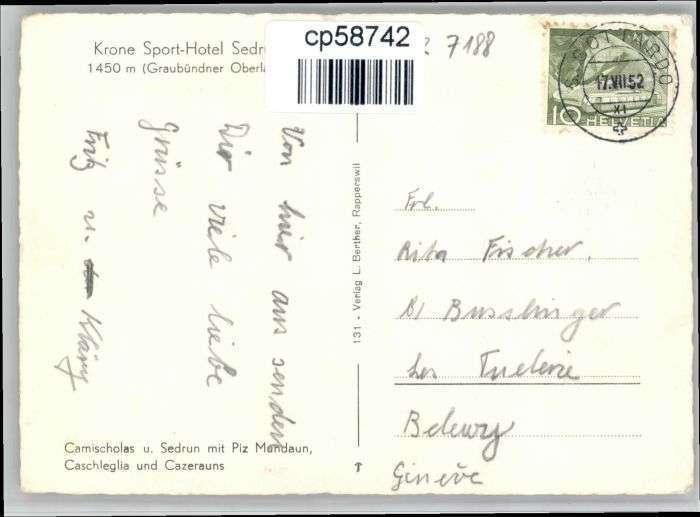 Krone Sport-Hotel Sedrun
1450 m (Graubündner Oberla
cp58742
7188
17.VII.52
XI
10 HELVETIA
Von hier aus senden
Dir viele liebe
Grüsse
Fritz u.
131 - Verlag L. Berther, Rapperswil
Frl.
Rita Fischer,
Busslinger
Les
Genève
Camischolas u. Sedrun mit Piz Mundaun,
Caschleglia und Cazerauns